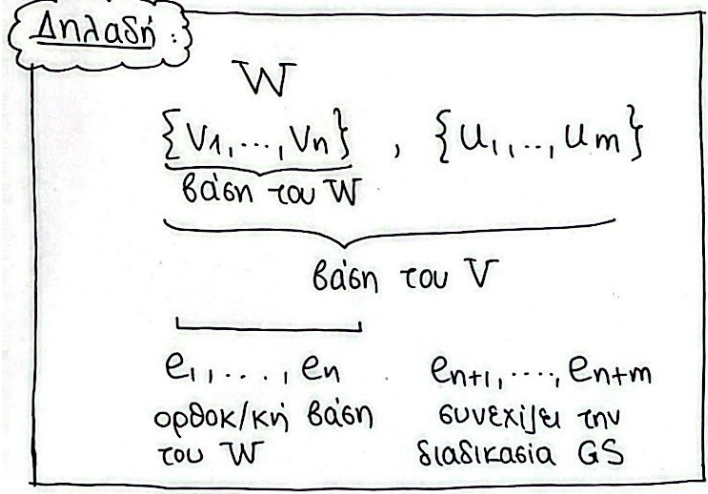 Δηλαδή:
W
{v1,...,vn} , {u1,..,um}
βάση του W
βάση του V
e1,....,en en+1,....,en+m
ορθοκ/κή βάση συνεχίζει την
του W διαδικασία GS